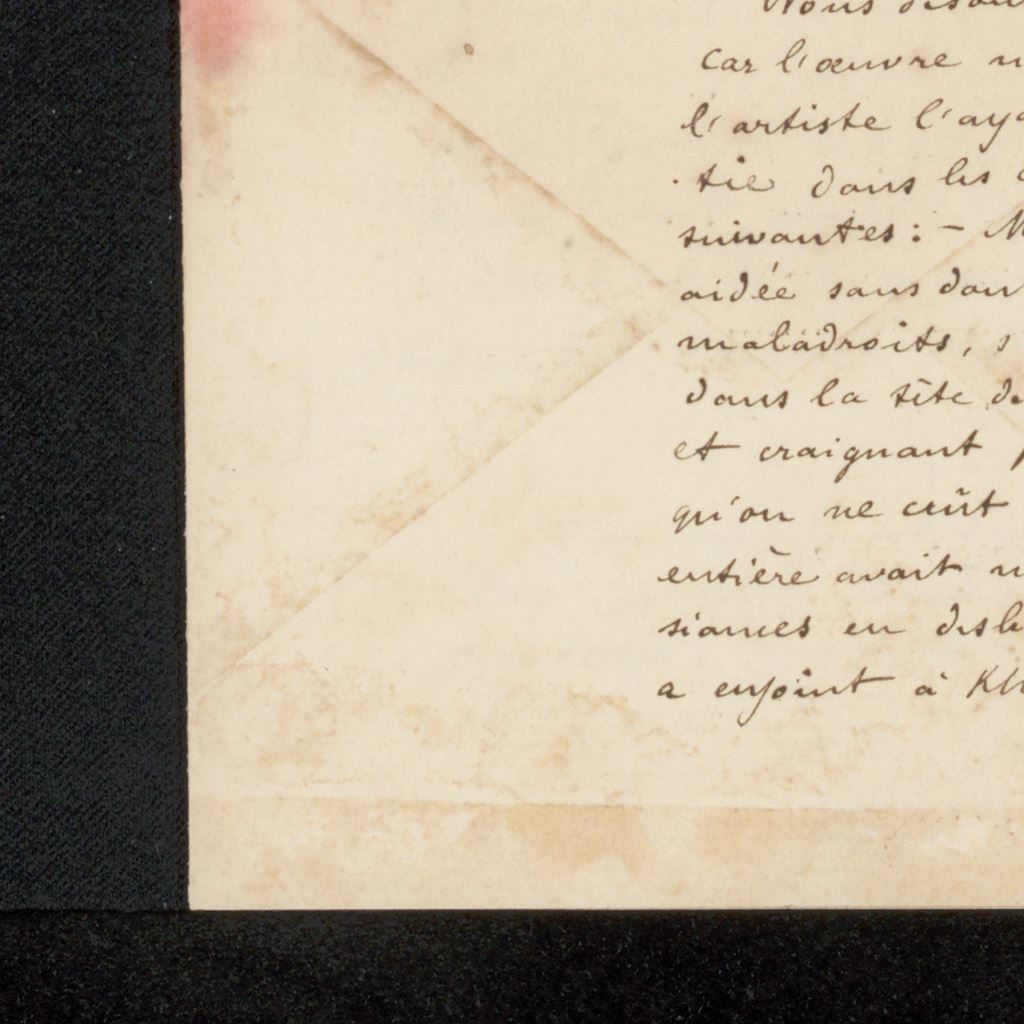 Nous
car l'œuvre
l'artiste l'aya
tie dans les
suivantes : –
aidée sans dou
maladroits, s
dans la tête de
et craignant
qu'on ne crût
entière avait
siances en
a enjoint à